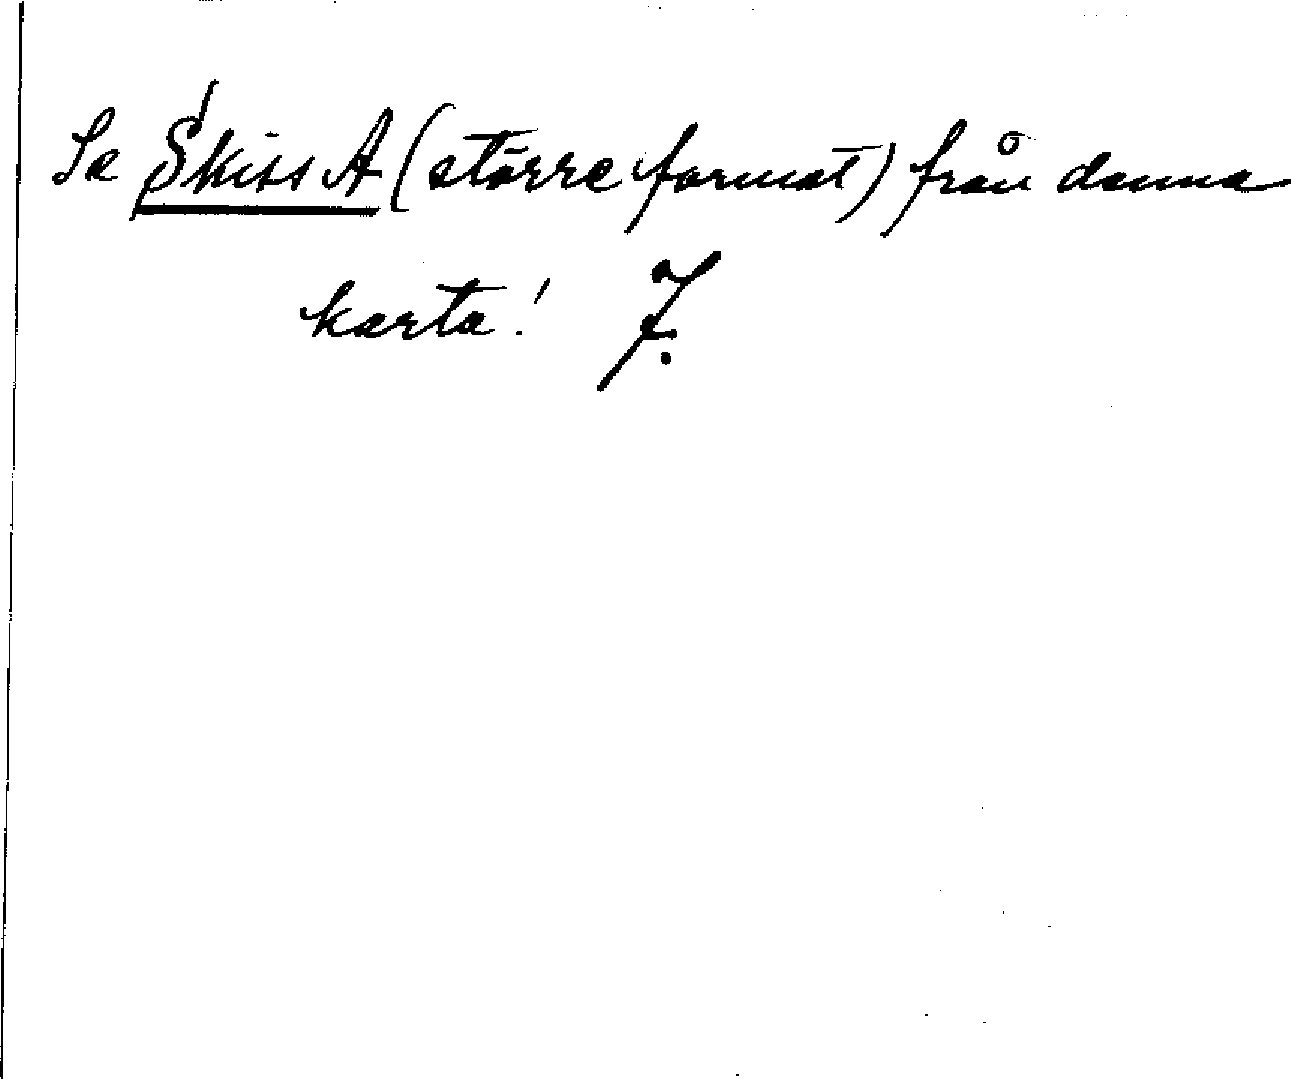 Se Skiss A (större format) från denna
karta!